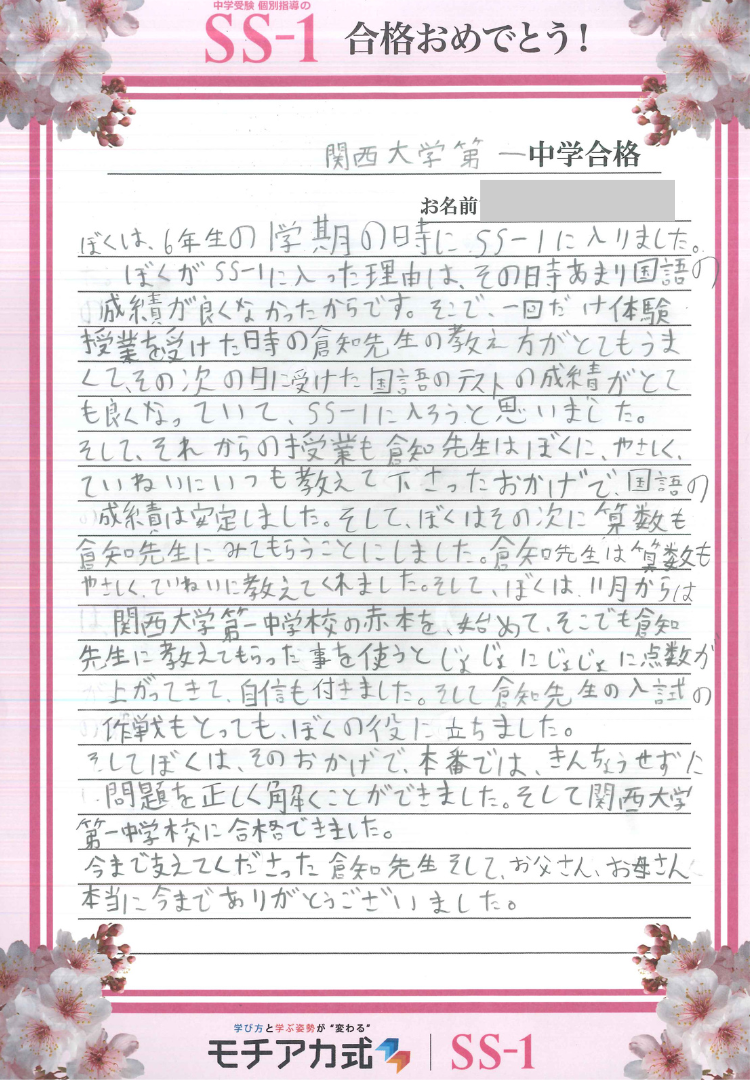 中学受験 個別指導の
SS-1 合格おめでとう!
関西大学第一中学合格
お名前
ぼくは、6年生の1学期の時にSS-1に入りました。
ぼくがSS-1に入った理由は、その日寺あまり国語の
成績が良くなかったからです。そこで、一回だけ体験
授業を受けた時の倉知先生の教え方がとてもうま
くて、その次の日に受けた国語のテストの成績がとて
も良くなっていて、SS-1に入ろうと思いました。
そして、それからの授業も倉知先生はぼくに、やさしく、
ていねいにいつも教えて下さったおかげで、国語の
成績は安定しました。そして、ぼくはその次に算数も
倉知先生にみてもらうことにしました。倉知先生は算数も
やさしく、ていねいに教えてくれました。そして、ぼくは、11月からは
関西大学第一中学校の赤本を、始めて、そこでも倉知
先生に教えてもらった事を使うとじょじょにじょじょに点数が
上がってきて、自信も付きました。そして倉知先生の入試の
作戦もとっても、ぼくの役に立ちました。
そしてぼくは、そのおかげで、本番では、きんちょうせずに
問題を正しく解くことができました。そして関西大学
第一中学校に合格できました。
今まで支えてくださった倉知先生そして、お父さん、お母さん
本当に今までありがとうございました。
学び方と学ぶ姿勢が"変わる"
モチアカ式 SS-1